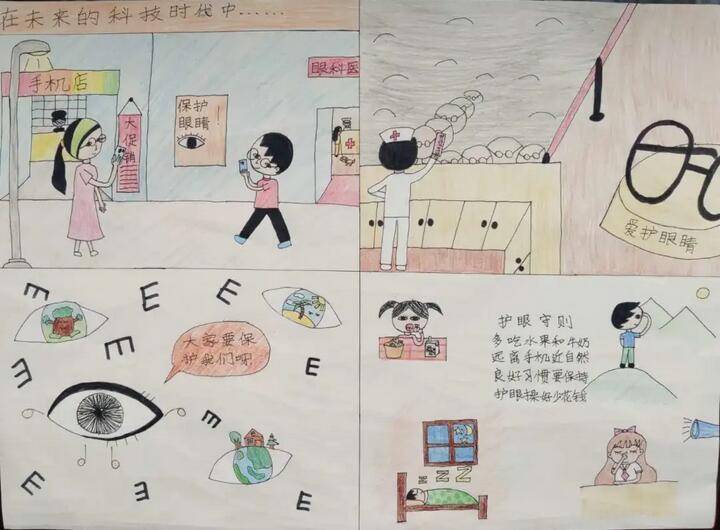 在未来的科技时代中……
手机店
大促销
保护
眼睛！
眼科医
爱护眼睛
E E E E E E E E E
大家要保
护我们呀
护眼守则
多吃水果和牛奶
远离手机近自然
良好习惯要保持
护眼操好少花钱
z z Z